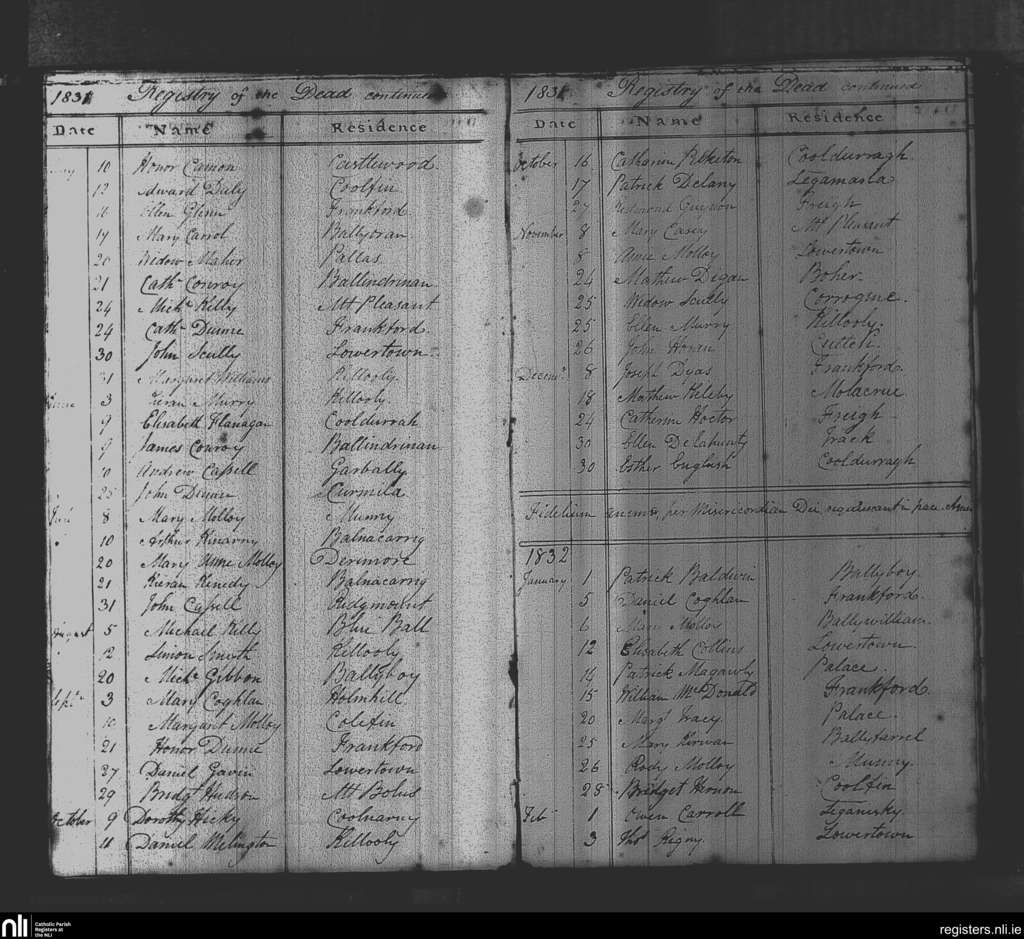 1831 Registry of the Dead continued
Date Name Residence
10 Honor Camon Castlewood
12 Edward Daly Coolfin
16 Ellen Glenn Frankford
17 Mary Carrol Ballyoran
20 Widow Maher Pallas
21 Cathe Conroy Ballindrinan
24 Michl Kelly Mt Pleasant
24 Cathe Dunne Frankford
30 John Scully Lowertown
31 Margaret Williams Killooly
June 3 Kieran Murry Killooly
9 Elisabeth Flanagan Cooldurrah
9 James Conroy Ballindrinan
10 Andrew Cassell Garbally
25 John Dunne Curmila
8 Mary Molloy Munny
10 Arthur Kinarny Balnacarrig
20 Mary Anne Molloy Derrimore
21 Kieran Kenedy Balnacarrig
31 John Cassell Ridgmount
August 5 Michael Kelly Blue Ball
12 Simon Smyth Killooly
20 Michl Gibbon Ballyboy
Septr 3 Mary Coghlan Holmhill
10 Margaret Molloy Colefin
21 Honor Dunne Frankford
27 Daniel Gavin Lowertown
29 Bridgt Hudson Mt Bolus
October 9 Dorothy Hicky Coolnarny
11 Daniel Melington Killooly
1831 Registry of the Dead continued
Date Name Residence
October 16 Catharine Cooldurragh
17 Patrick Delany Legamarla
27 Redmond Freigh
November 8 Mary Casey Mt Pleasant
8 Anne Molloy Lowertown
24 Mathew Degan Boher
25 Widow Scully Corrogine
25 Ellen Murry Killooly
26 John Horan
Decemr 8 Joseph Dyas Frankford
18 Mathew Molacrue
24 Catherine Hoctor Freigh
30 Ellen Delahunty
30 Esther English Cooldurragh
Fidelium animæ, per Misericordiam Dei requiescant in pace. Amen
1832
January 1 Patrick Baldwin Ballyboy
5 Daniel Coghlan Frankford
6 Mary Molloy Ballywilliam
12 Elisabeth Collins Lowertown
14 Patrick Magawly Palace
15 William McDonald Frankford
20 Margt Tracy Palace
25 Mary Kirwan Ballyfarrel
26 Rody Molloy Munny
28 Bridget Vernon Coolfin
Feb 1 Owen Carroll Legarusky
3 Ths Rigny Lowertown
nli Catholic Parish Registers at the NLI
registers.nli.ie